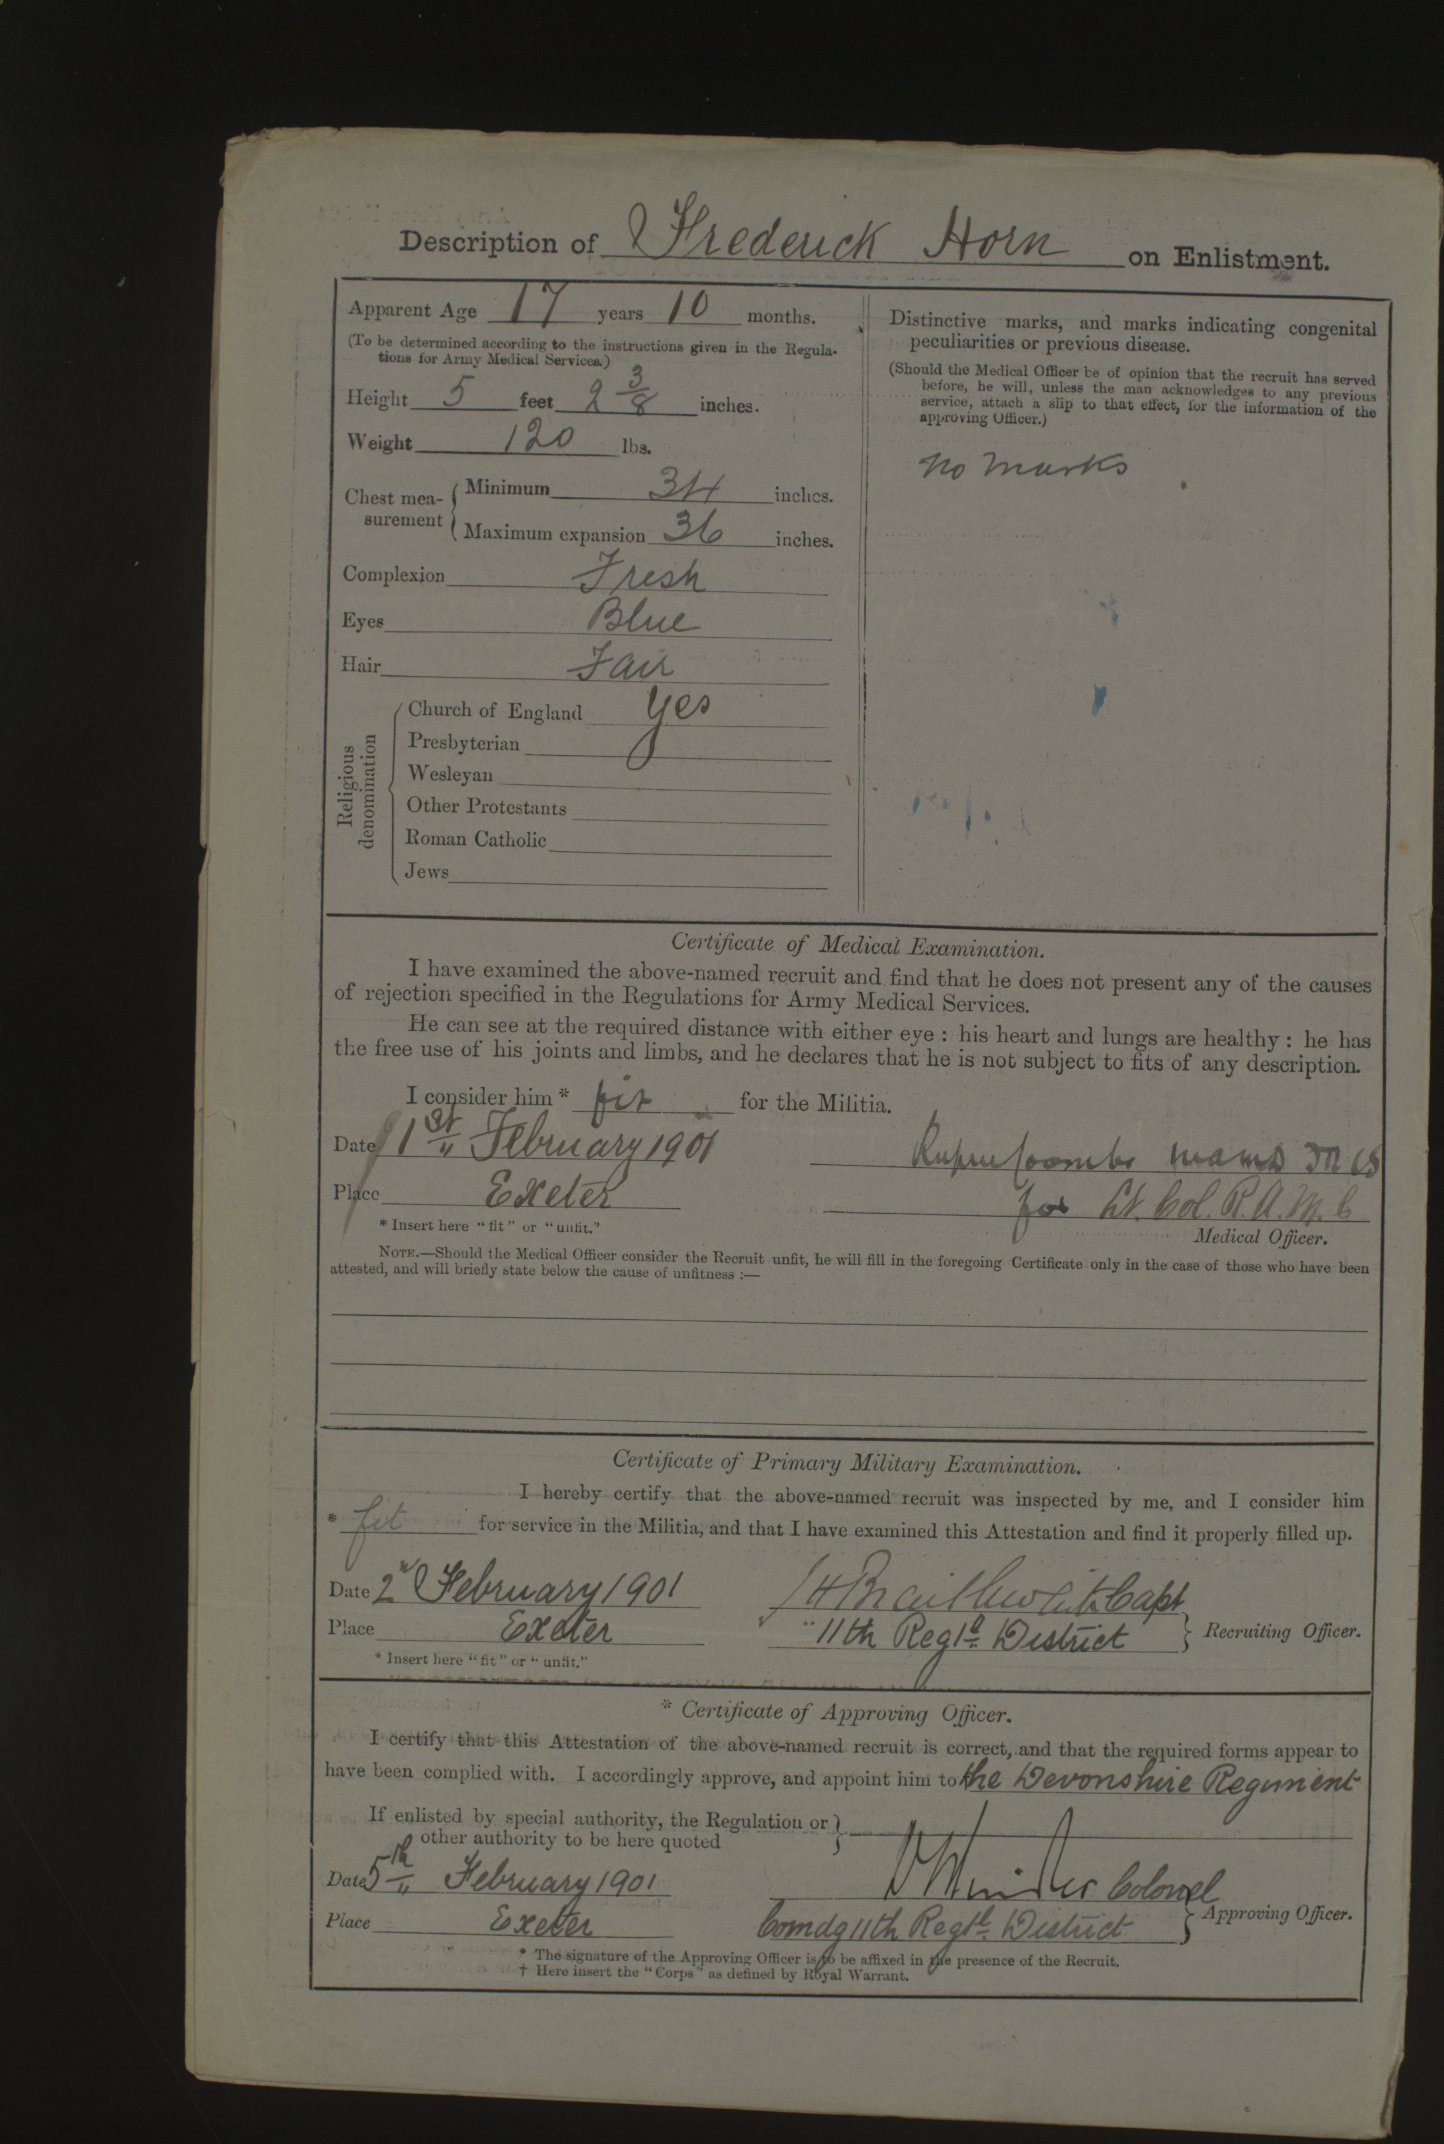 Description of Frederick Horn on Enlistment.
Apparent Age 17 years 10 months.
(To be determined according to the instructions given in the Regula-
tions for Army Medical Services.)
Height 5 feet 2 3/8 inches.
Weight 120 lbs.
Chest mea-
surement
Minimum 34 inches.
Maximum expansion 36 inches.
Complexion Fresh
Eyes Blue
Hair Fair
Religious
denomination
Church of England Yes
Presbyterian
Wesleyan
Other Protestants
Roman Catholic
Jews
Distinctive marks, and marks indicating congenital
peculiarities or previous disease.
(Should the Medical Officer be of opinion that the recruit has served
before, he will, unless the man acknowledges to any previous
service, attach a slip to that effect, for the information of the
approving Officer.)
no marks
Certificate of Medical Examination.
I have examined the above-named recruit and find that he does not present any of the causes
of rejection specified in the Regulations for Army Medical Services.
He can see at the required distance with either eye : his heart and lungs are healthy : he has
the free use of his joints and limbs, and he declares that he is not subject to fits of any description.
I consider him * fit for the Militia.
Date 1st February 1901
Coombe
Place Exeter
for Lt. Col. R.A.M.C
* Insert here "fit" or "unfit."
Medical Officer.
NOTE.—Should the Medical Officer consider the Recruit unfit, he will fill in the foregoing Certificate only in the case of those who have been
attested, and will briefly state below the cause of unfitness :—
Certificate of Primary Military Examination.
I hereby certify that the above-named recruit was inspected by me, and I consider him
* fit for service in the Militia, and that I have examined this Attestation and find it properly filled up.
Date 2nd February 1901
Capt
Place Exeter
11th Regtl District
Recruiting Officer.
* Insert here "fit" or "unfit."
* Certificate of Approving Officer.
I certify that this Attestation of the above-named recruit is correct, and that the required forms appear to
have been complied with. I accordingly approve, and appoint him to the Devonshire Regiment
If enlisted by special authority, the Regulation or
other authority to be here quoted
Date 5th February 1901
Colonel
Place Exeter
Comdg 11th Regtl District
Approving Officer.
* The signature of the Approving Officer is to be affixed in the presence of the Recruit.
† Here insert the "Corps" as defined by Royal Warrant.